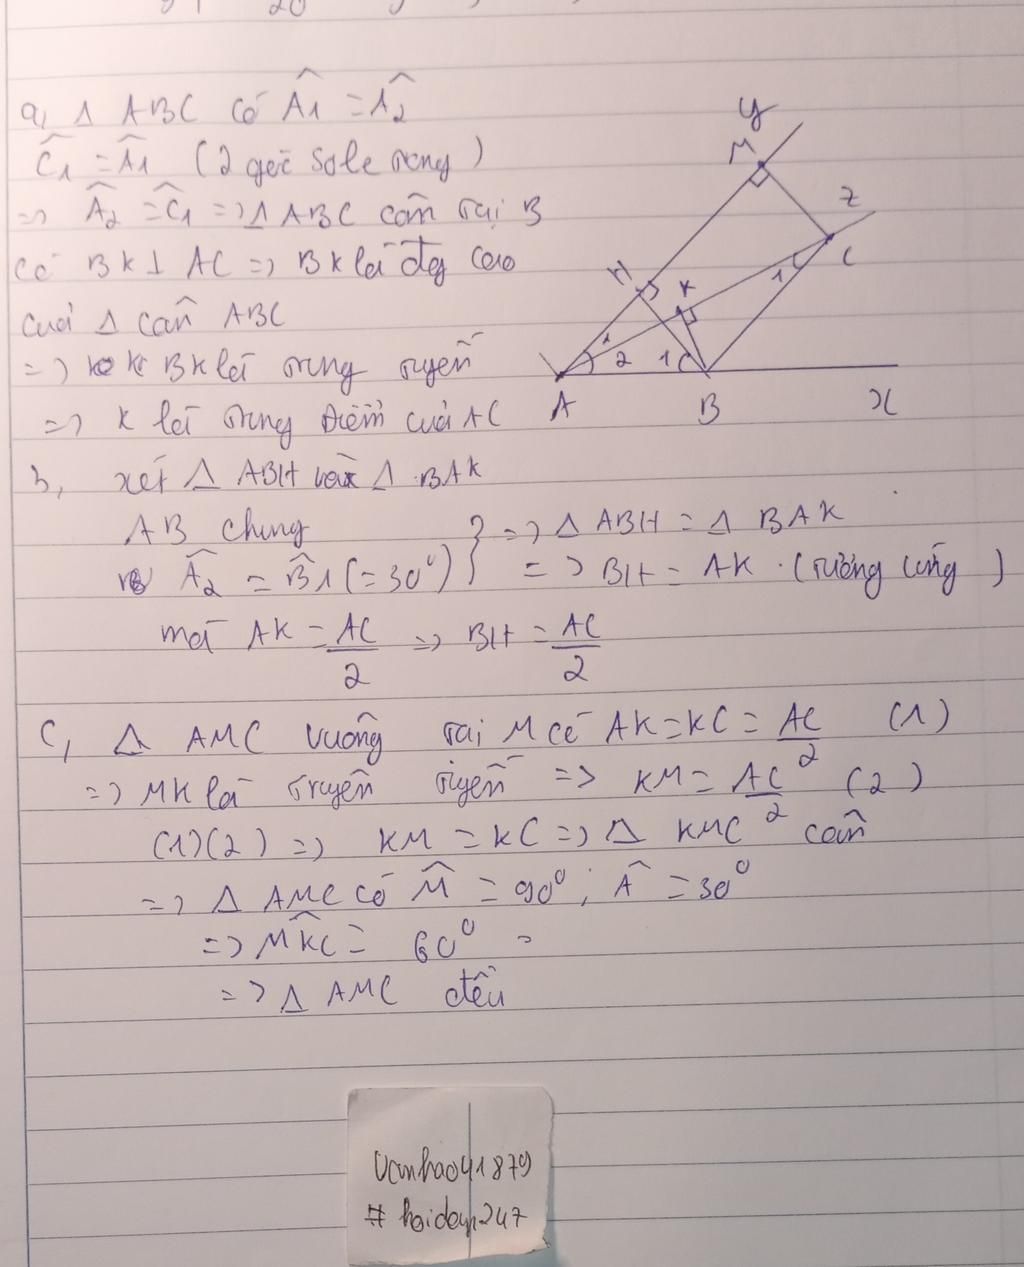 20
a, Δ ABC có Â1 = Â2
Ĉ1 = Â1 (2 góc sole trong)
=> Â2 = Ĉ1 => Δ ABC cân tại B
có BK ⊥ AC => BK là đg cao
của Δ cân ABC
=> BK là trung tuyến
=> K là trung điểm của AC
b, xét Δ ABH và Δ BAK
AB chung
Â2 = B̂1 (= 30°) } => Δ ABH = Δ BAK
=> BH = AK. (tương ứng)
mà AK = AC/2 => BH = AC/2
c, Δ AMC vuông tại M có AK = KC = AC/2 (1)
=> MK là truyến tuyến => KM = AC/2 (2)
(1)(2) => KM = KC => Δ KMC cân
=> Δ AMC có M̂ = 90°; Â = 30°
=> MK̂C = 60°
=> Δ AMC đều
y
M
z
C
1
H
K
1
2
1
A
B
x
Vanhao41879
# hoidap247